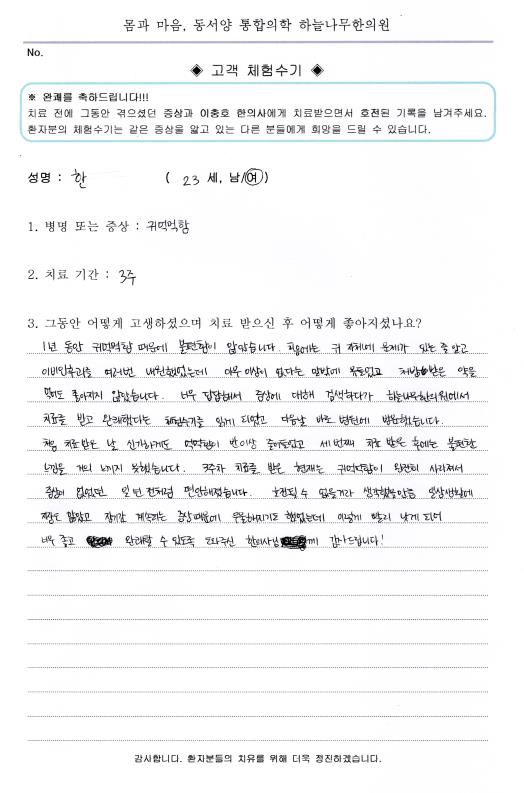 몸과 마음, 동서양 통합의학 하늘나무한의원
No.
◈ 고객 체험수기 ◈
※ 완쾌를 축하드립니다!!!
치료 전에 그동안 겪으셨던 증상과 이충호 한의사에게 치료받으면서 호전된 기록을 남겨주세요.
환자분의 체험수기는 같은 증상을 앓고 있는 다른 분들에게 희망을 드릴 수 있습니다.
성명 : 한 ( 23 세, 남/여)
1. 병명 또는 증상 : 귀먹먹함
2. 치료 기간 : 3주
3. 그동안 어떻게 고생하셨으며 치료 받으신 후 어떻게 좋아지셨나요?
1년 동안 귀먹먹함 때문에 불편함이 많았습니다. 처음에는 귀 자체에 문제가 있는 줄 알고
이비인후과를 여러번 내원했었는데 아무 이상이 없다는 말밖에 못들었고 처방받은 약을
먹어도 좋아지지 않았습니다. 너무 답답해서 증상에 대해 검색하다가 하늘나무한의원에서
치료를 받고 완쾌했다는 체험수기를 읽게 되었고 다음날 바로 병원에 방문했습니다.
처음 치료받은 날 신기하게도 먹먹함이 반이상 줄어들었고 세번째 치료 받은 후에는 불편한
느낌을 거의 느끼지 못했습니다. 3주차 치료를 받은 현재는 귀먹먹함이 완전히 사라져서
증상이 없었던 일 년 전처럼 편안해졌습니다. 호전될 수 없을거라 생각했을만큼 일상생활에
지장도 많았고 장기간 계속되는 증상때문에 우울해지기도 했었는데 이렇게 빨리 낫게 되어
너무 좋고 완쾌할 수 있도록 도와주신 한의사님께 감사드립니다!
감사합니다. 환자분들의 치유를 위해 더욱 정진하겠습니다.